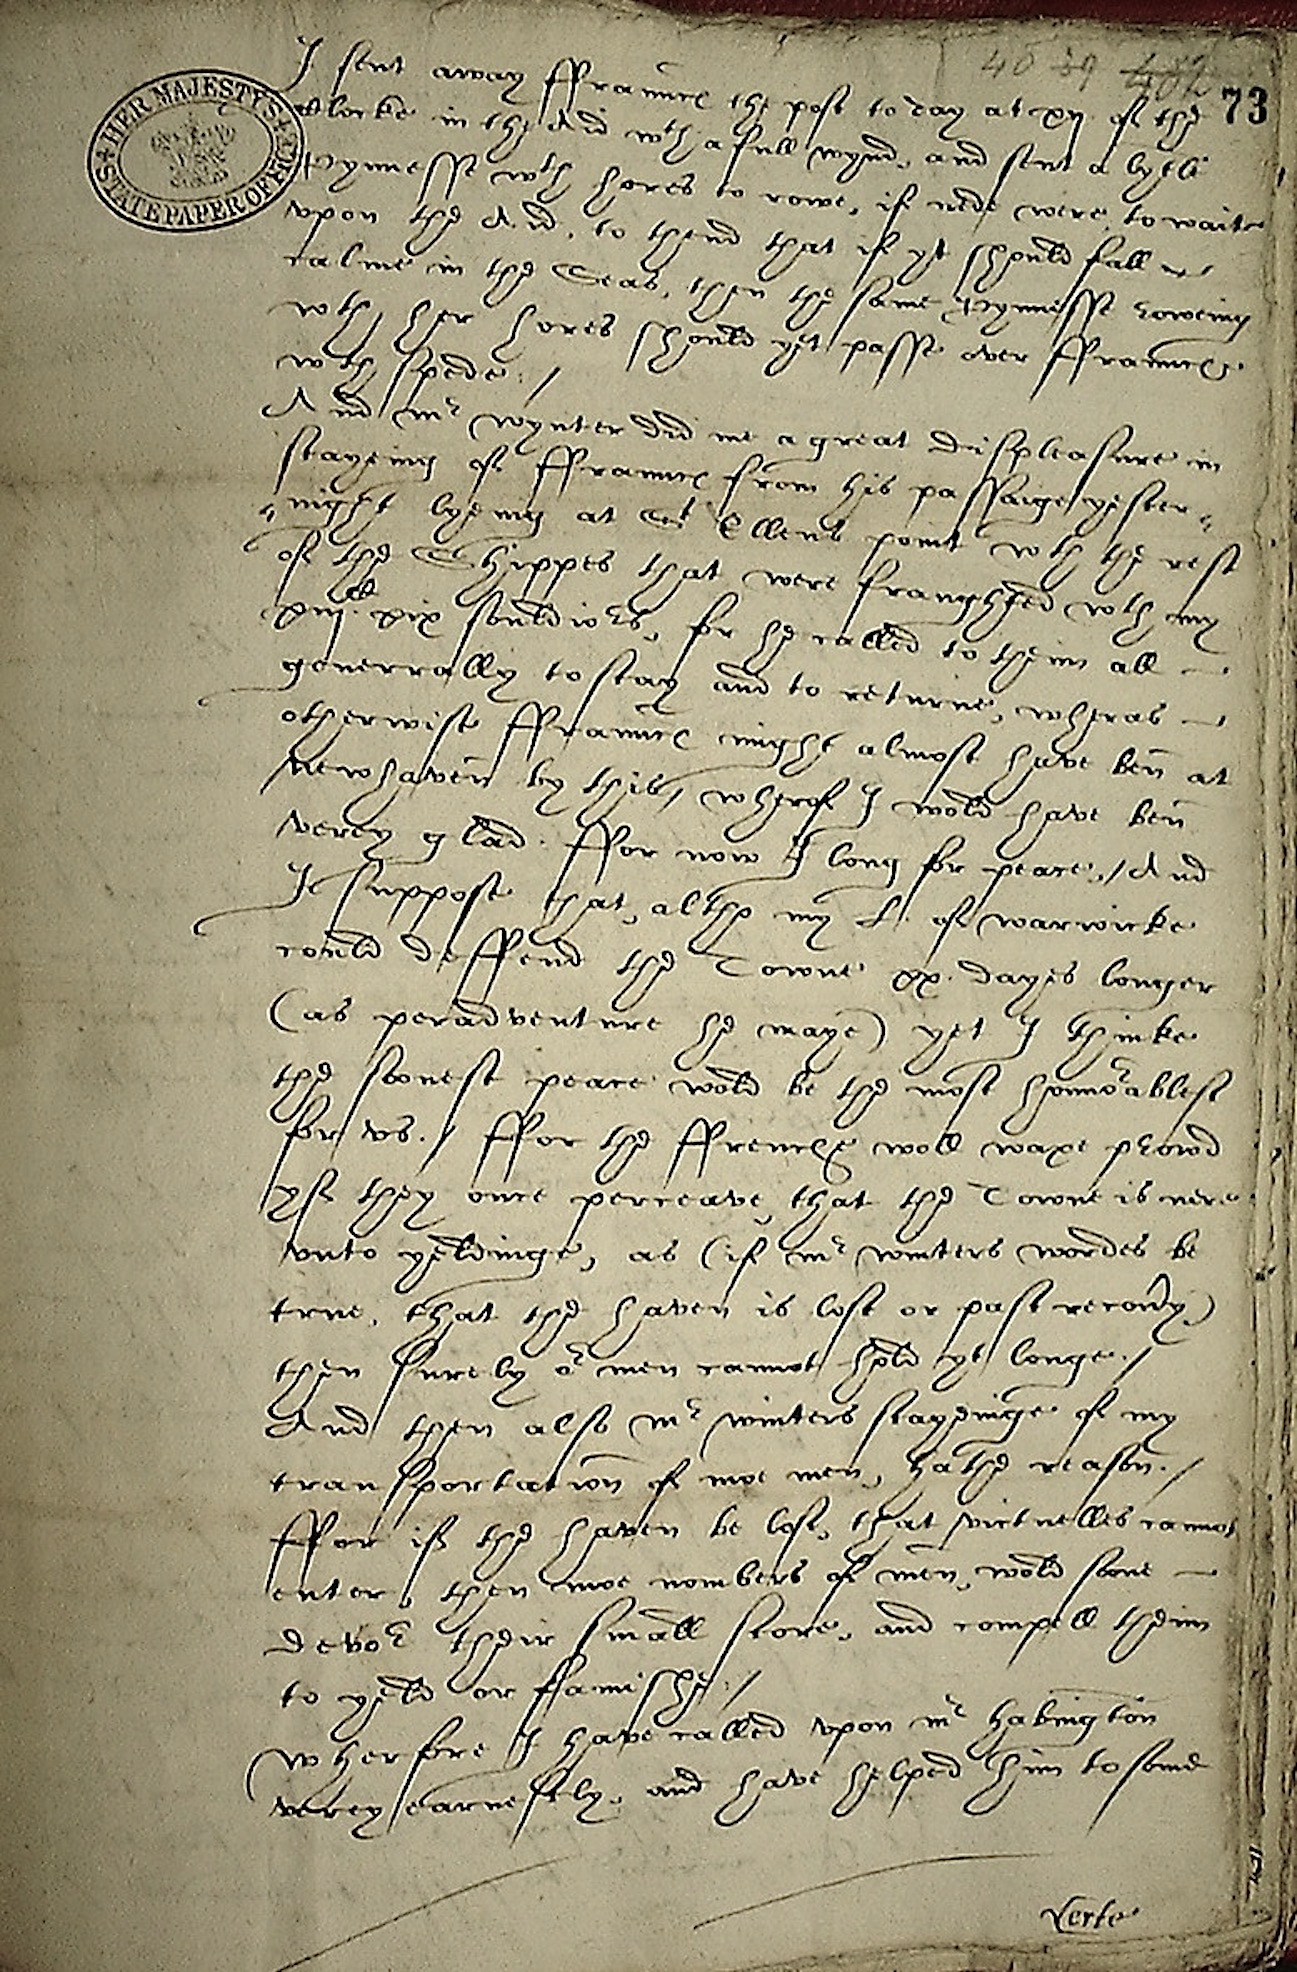 40 39 402
73
HER MAJESTY'S STATE PAPER OFFICE
I sent away ffraunces the post to day at xij of the
clocke in the Aid wth a full wynd, and sent a lytle
Pynnesse wth hores to rowe, if nede were, to waite
vpon the Aid, to thend that if yt should fall
calme in the Seas, then the same Pynnesse roweing
wth her hores should yet passe over ffraunces
wth spede. /
And mr wynter did me a great displeasure in
stayeing of ffraunces from his passaige yester
night lyeing at St Ellens point wth the rest
of the Shippes that were fraughted wth my
xiijc xix souldiors, for he called to theim all
generrally to stay and to returne, wheras
otherwise ffraunces might almost have ben at
Newhaven by this, wherof I wold have ben
verey glad. ffor now I long for peace. / And
I suppose that, altho my L. of warwicke
could deffend the Towne xx. dayes longer
(as peradventure he maye) yet I thinke
the soonest peace wold be the most honnorablest
for vs. / ffor the ffrenche woll waxe prowd
yf they once perceave that the Towne is nere
vnto yeldinge, as (if mr winters wordes be
true, that the haven is lost or past recouvy)
then surely or men cannot hold yt longe. /
And then also mr winters stayeinge of my
transportation of moe men, hathe reason. /
ffor if the haven be lost, that victuelles cannot
enter, then moe nombers of men, wold soone
devor their small store, and compell theim
to yeld or famishe. /
wherfore I have called vpon mr habington
verey earnestly, and have helped him to some
Verte